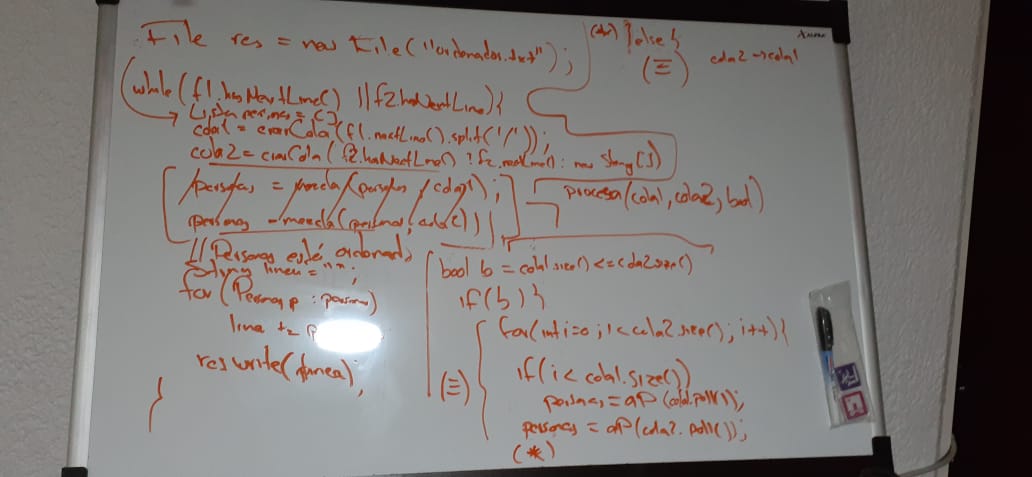 File res = new File("ordenados.txt");
while(f1.hasNextLine() || f2.hasNextLine){
cola1 = crearCola(f1.nextLine().split('/'));
cola2 = crearCola(f2.hasNextLine() ? f2.nextLine() : new String[]
personas = mezcla(personas, cola1);
personas = mezcla(personas, cola2))
// Personas esté ordenada
String linea = "";
for(Persona p : personas)
linea += p
res.write(linea);
}
(*) }else{
(Ξ)
cola2 → cola1
procesa(cola1, cola2, bool)
bool b = cola1.size() <= cola2.size()
if(b){
for(int i=0; i<cola2.size(); i++){
if(i < cola1.size())
personas = aP(cola1.poll());
personas = aP(cola2.poll());
(*)
(Ξ)